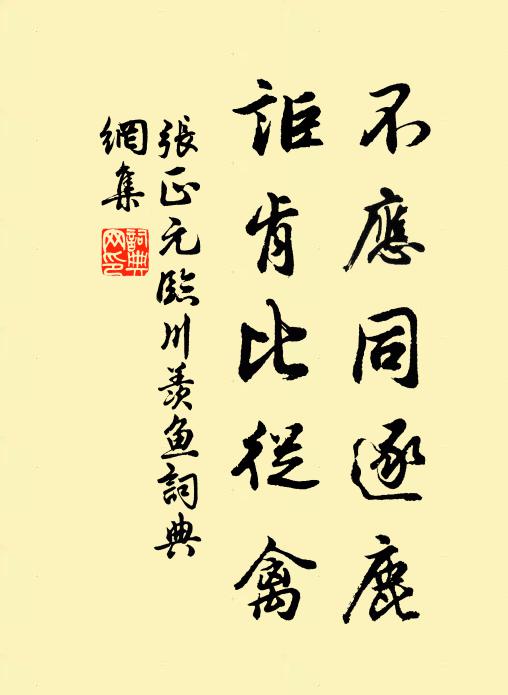 不應同逐鹿
詎肯比從禽
張正元臨川羨魚詞典
網集
詞典網印